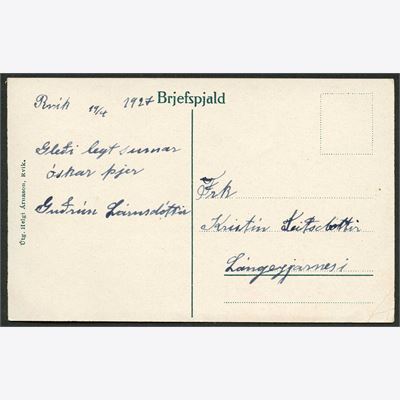 Rvík 19/4 1927
Brjefspjald
Gleði legt sumar
óskar þjer
Guðrún Lárusdóttir
Útg. Helgi Árnason, Rvík.
Frk
Kristín